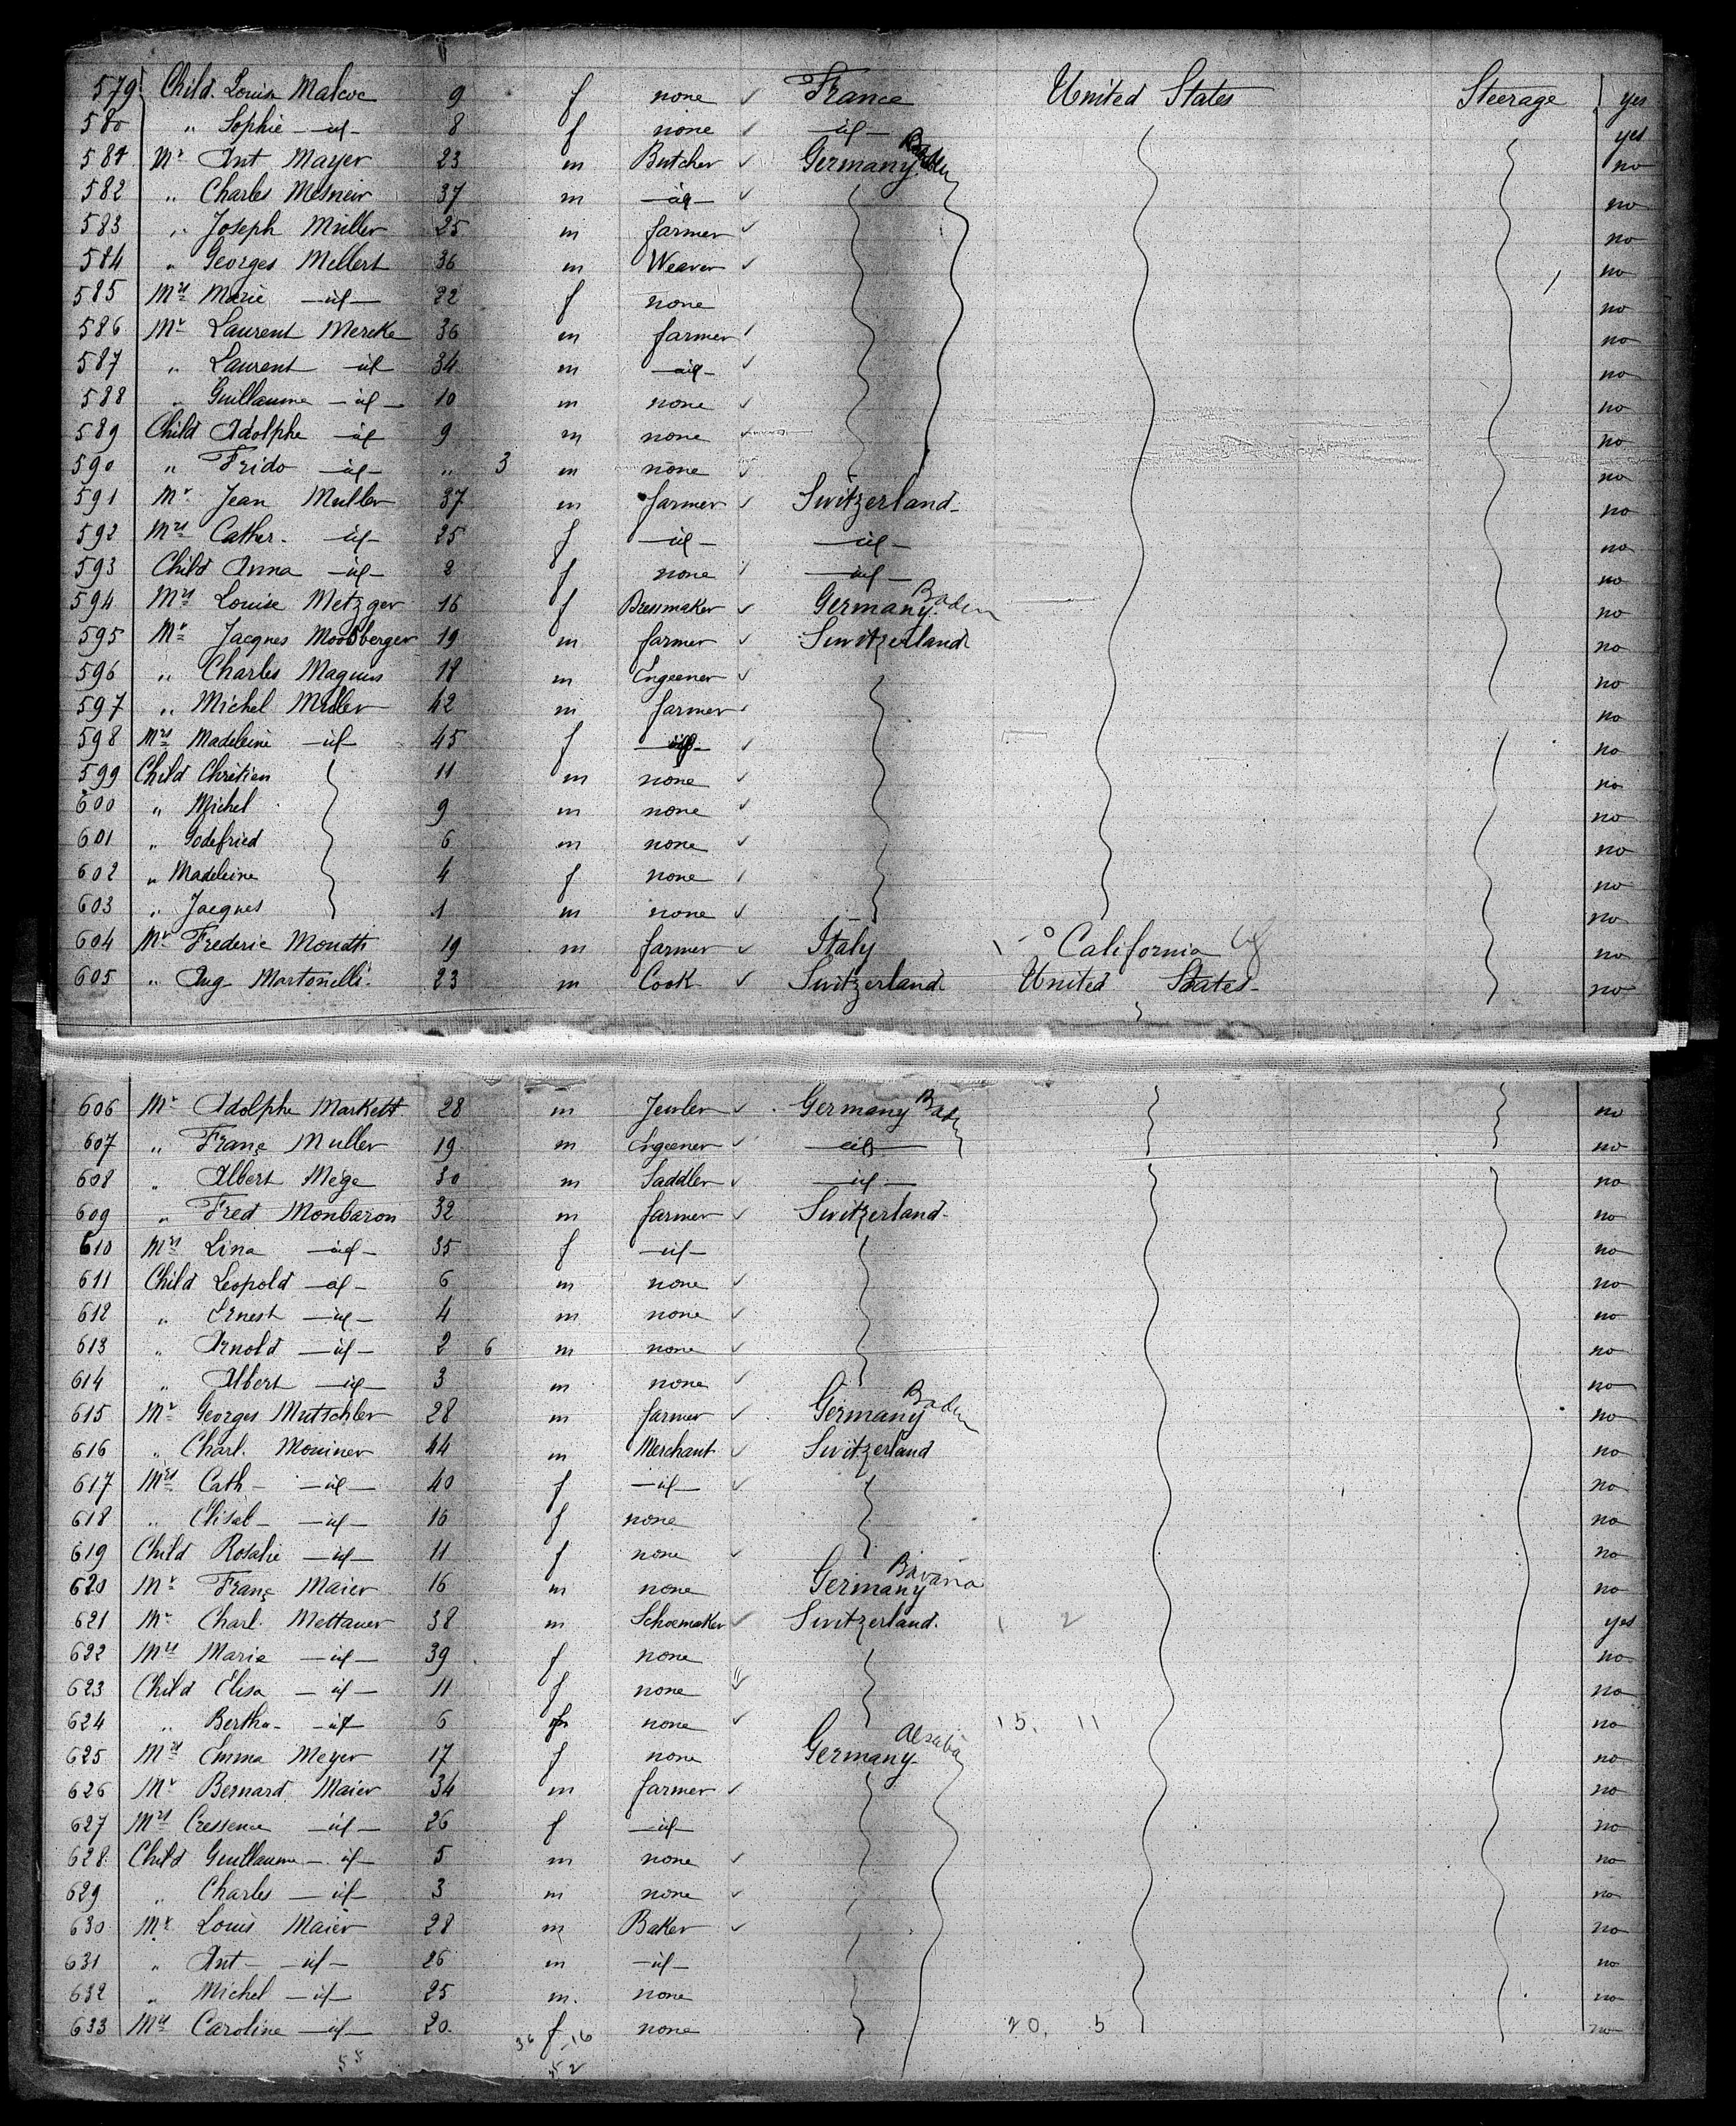 579 Child. Louise Malcoc 9 f none ✓ France United States Steerage yes
580 " Sophie —id— 8 f none ✓ —id— yes
581 Mr Ant Mayer 23 m Butcher ✓ Germany Baden no
582 " Charles 37 m —id— ✓ no
583 " Joseph Muller 25 m farmer ✓ no
584 " Georges Mellert 36 m Weaver ✓ no
585 Mrs Marie —id— 22 f none no
586 Mr Laurent Mercke 36 m farmer no
587 " Laurent —id 34 m —id— ✓ no
588 " Guillaume —id— 10 m none ✓ no
589 Child Adolphe —id 9 m none ✓ no
590 " Frido —id— " 3 m none ✓ no
591 Mr Jean Muller 37 m farmer ✓ Switzerland no
592 Mrs Cather. —id— 25 f —id— —id— no
593 Child Anna —id— 2 f none —id— no
594 Mrs Louise Metzger 16 f Dressmaker ✓ Germany. Baden no
595 Mr Jacques Moosberger 19 m farmer ✓ Switzerland no
596 " Charles Magnus 18 m Engeener ✓ no
597 " Michel 42 m farmer no
598 Mrs Madeleine —id— 45 f —id— ✓ no
599 Child Chrétien 11 m none ✓ no
600 " Michel 9 m none ✓ no
601 " Godefried 6 m none ✓ no
602 " Madeleine 4 f none no
603 " Jacques 1 m none ✓ no
604 Mr Frederic 19 m farmer ✓ Italy California no
605 " Aug Martonelli 23 m Cook ✓ Switzerland United States no
606 Mr Adolphe Markett 28 m Jewler ✓ Germany Baden no
607 " Franç Muller 19 m Engeener ✓ —id— no
608 " Albert Mège 30 m Saddler ✓ —id— no
609 " Fred Monbaron 32 m farmer ✓ Switzerland no
610 Mrs Lina —id— 35 f —id— no
611 Child Leopold —id— 6 m none ✓ no
612 " Ernest —id— 4 m none ✓ no
613 " Arnold —id— 2 6 m none ✓ no
614 " Albert —id— 3 m none ✓ no
615 Mr Georges Mutschler 28 m farmer ✓ Germany Baden no
616 " Charl. Mouiner 44 m Merchant ✓ Switzerland no
617 Mrs Cath— —id— 40 f —id— ✓ no
618 " Elisab— —id— 16 f none no
619 Child Rosalie —id— 11 f none ✓ no
620 Mr Franç Maier 16 m none Germany Bavaria no
621 Mr Charl. Mettauer 38 m Schoemaker ✓ Switzerland. 1 2 yes
622 Mrs Marie —id— 39 f none no
623 Child Elisa —id— 11 f none ✓ no
624 " Bertha— —id 6 f none ✓ 15. 11 no
625 Mrs Emma Meyer 17 f none Germany no
626 Mr Bernard Maier 34 m farmer ✓ no
627 Mrs Cressence —id— 26 f —id— no
628 Child Guillaume —id— 5 m none ✓ no
629 " Charles —id— 3 m none ✓ no
630 Mr Louis Maier 28 m Baker ✓ no
631 " Ant— —id— 26 m —id— no
632 " Michel —id— 25 m. none no
633 Mrs Caroline —id— 20. f none 20. 5 no
36 16
55 52